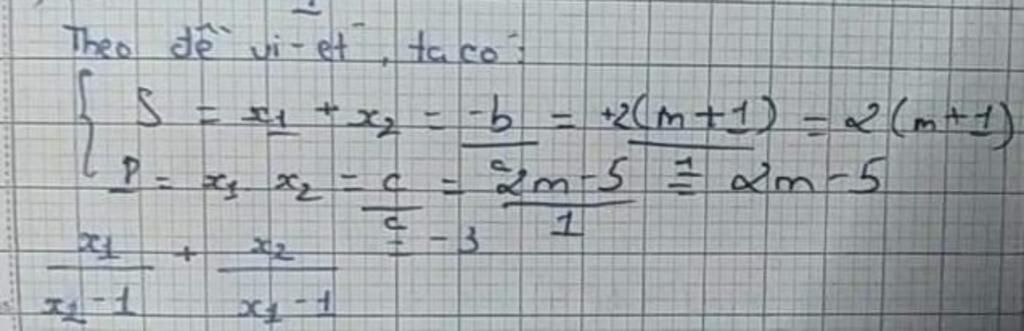 Theo đề vi-et, ta có:
{ S = x₁ + x₂ = -b/a = +2(m+1)/1 = 2(m+1)
P = x₁ x₂ = c/a = 2m-5/1 = 2m-5
x₁/x₂-1 + x₂/x₁-1 = -3